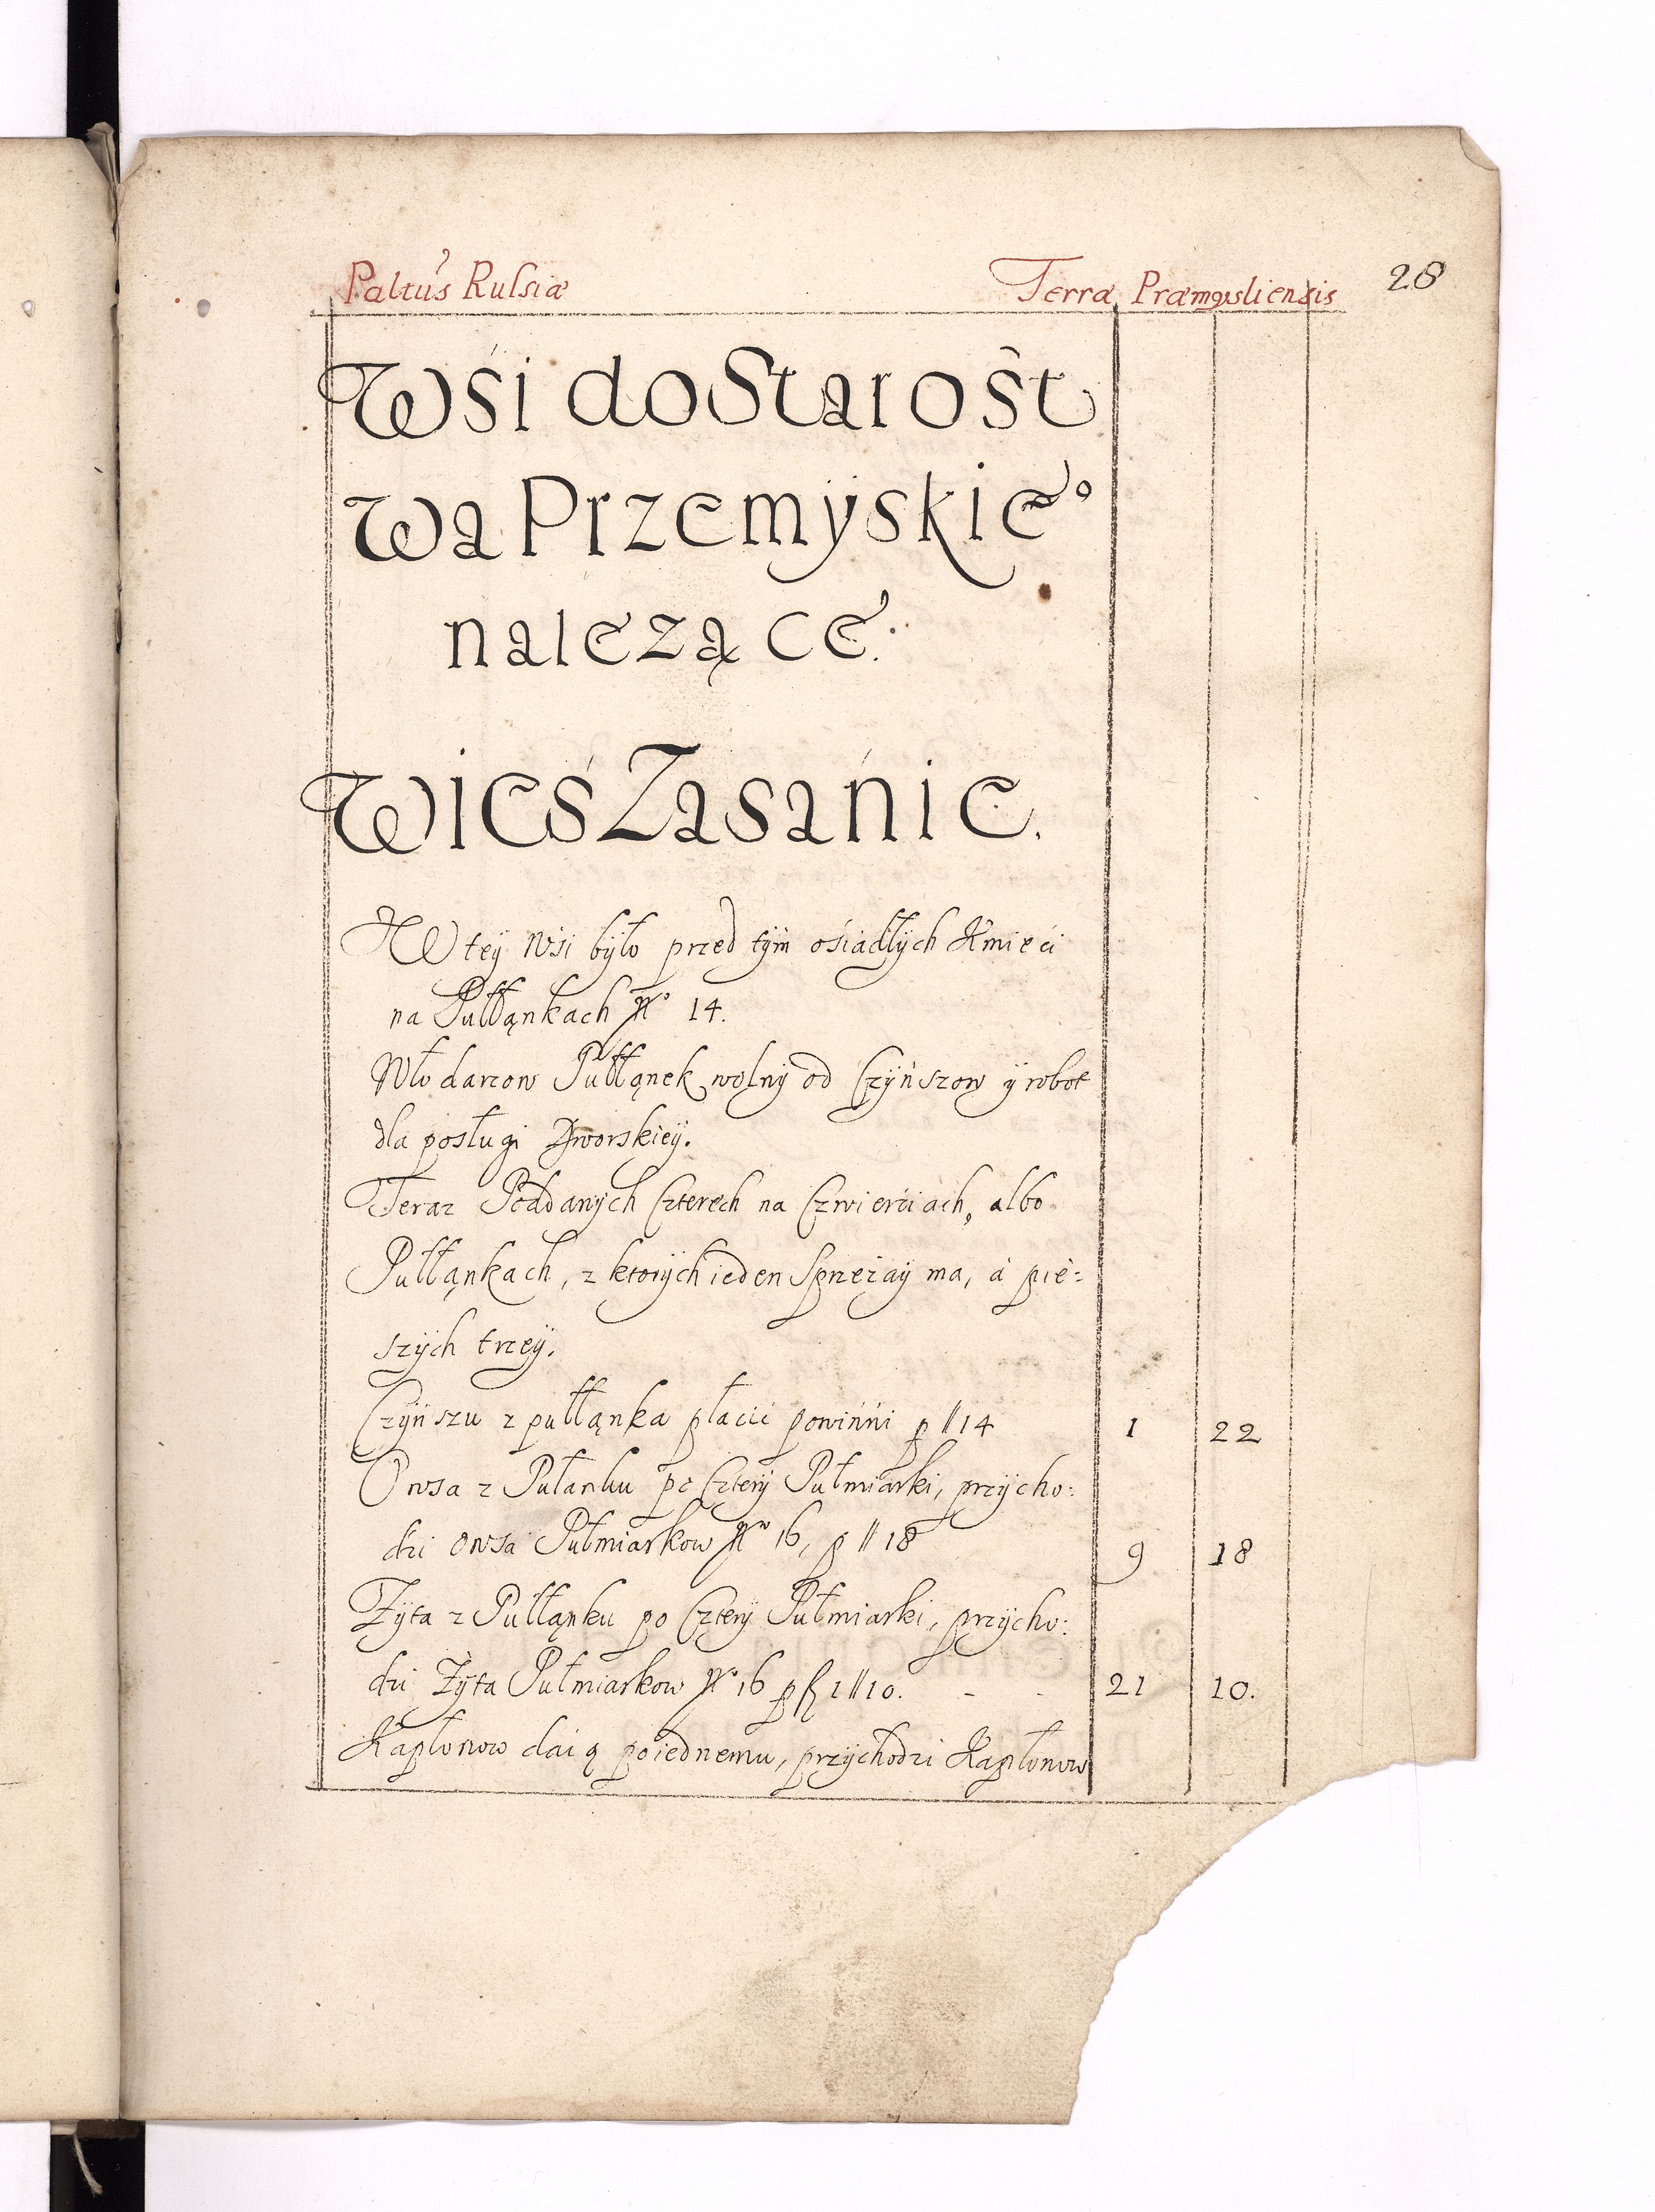 Paltûs Russiæ Terra Præmysliensis 28
Wśi do Starość
wa Przemÿskieº
nalezące.
Wieś Zasánie.
W teÿ Wśi bÿło przed tÿm ośiadłÿch Kmieći
na Pułłąnkach Nº 14.
Włodarzow Pułłąnek wolnÿ od Czÿńszow ÿ robot
dla posługi Dworskieÿ.
Teraz Poddanÿch Czterech na Czwierćiach, albo
Pułłąnkach, z ktorÿch ieden Sprzeżaÿ ma, á pie:
szÿch trzeÿ.
Czÿńszu z pułłąnka płacić powinni p 11 14 1 22
Owsa z Pułanku po Czterÿ Pułmiarki, przÿcho:
dzi owsa Pułmiarkow Nº 16, p 11 18 9 18
Żÿta z Pułłąnku po Czterÿ Pułmiarki, przÿcho:
dzi Żÿta Pułmiarkow Nº 16 p fl 1 11 10. - - 21 10.
Kapłonow daią poiednemu, przÿchodzi Kapłonow